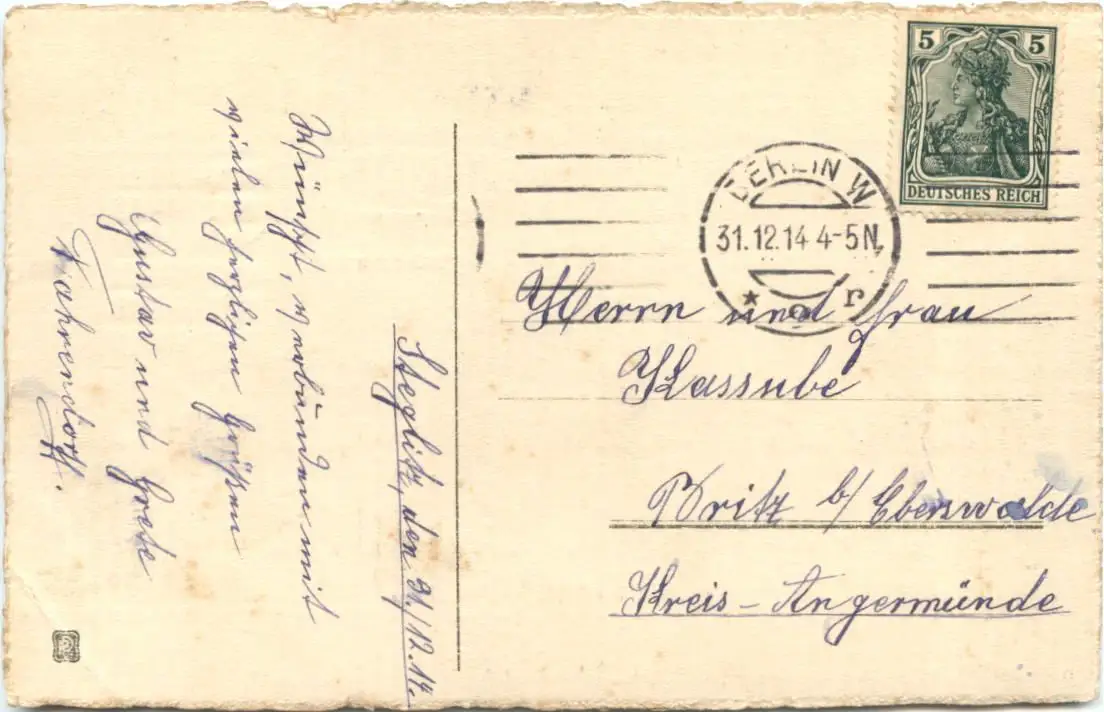 5 5
DEUTSCHES REICH
BERLIN W
31.12.14 4-5N.
* 9 r
Herrn und Frau
Kassube
Britz b/ Eberswalde
Kreis-Angermünde
Steglitz, den 31./12.14.
Wünscht, verbunden mit
vielen herzlichen Grüßen
Gustav und Grete
Fahrendorff.